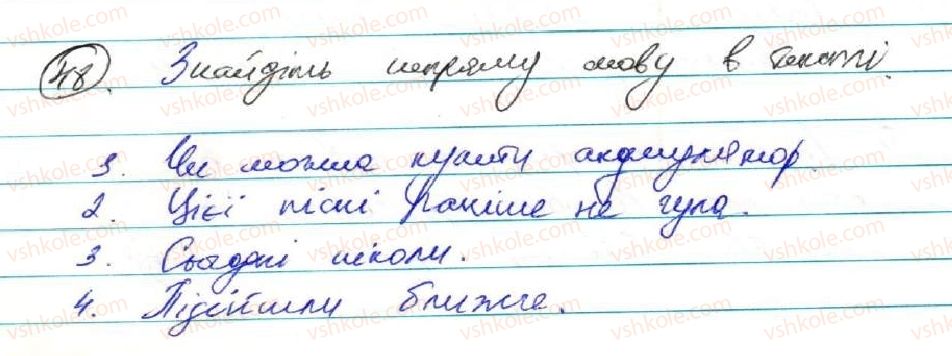 48. Знайдіть непряму мову в тексті.
1. Чи можна купити акумулятор.
2. Цієї пісні раніше не чула.
3. Сьогодні ніколи.
4. Підійшли ближче.
vshkole.com